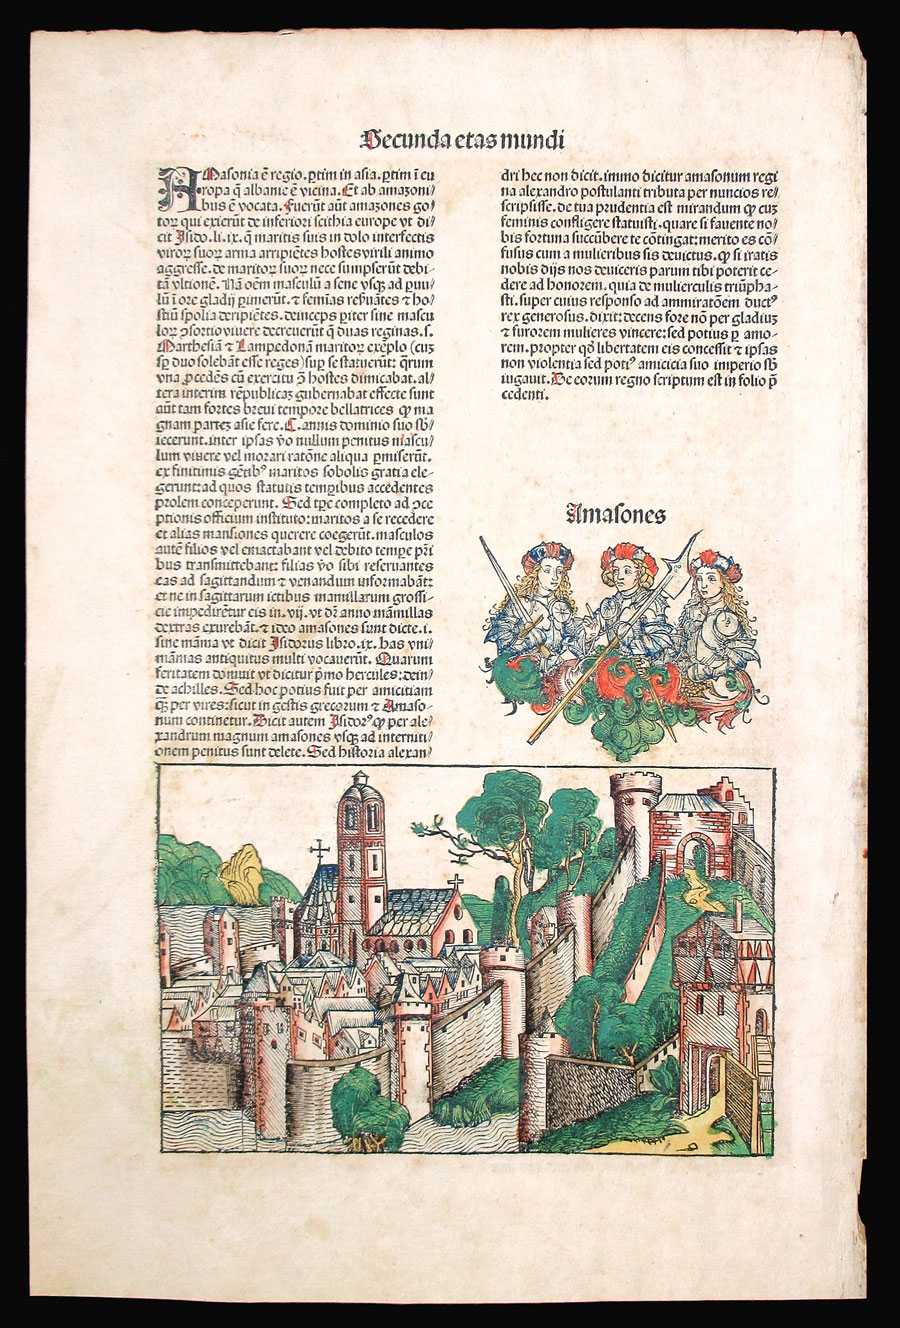 Secunda etas mundi
AMasonia ē regio. ꝑtim in asia. ꝑtim ī eu
ropa q̄ albanie ē vicina. Et ab amazoni/
bus ē vocata. Fuerūt aūt amazones go/
toꝝ qui exierūt de inferiori scithia europe vt di/
cit Isido. li. ix. q̄ maritis suis in dolo interfectis
viroꝝ suoꝝ arma arripiētes hostes virili animo
aggresse. de maritoꝝ suoꝝ nece sumpserūt debi/
tā vltionē. Nā oēm masculū a sene vsqꝫ ad paruu/
lū ī ore gladij ꝑimerūt. ⁊ femīas reẜuātes ⁊ ho/
stiū spolia deripiētes. deinceps ꝑiter sine mascu
loꝝ ↄsortio viuere decreuerūt q̄ duas reginas. s.
Marthesiā ⁊ Lampedonā maritoꝝ exēplo (cuꝫ
sꝑ duo solebāt esse reges) suꝑ se statuerūt: qrum
vna ꝓcedēs cū exercitu ꝯ̄ hostes dimicabat. al/
tera interim rēpublicaꝫ gubernabat effecte sunt
aūt tam fortes breui tempore bellatrices ꝙ ma
gnam parteꝫ asie fere. C. annis dominio suo sb̄/
iecerunt. inter ipsas v̄o nullum penitus mascu/
lum viuere vel morari ratōne aliqua ꝑmiserūt.
ex finitimis gētibꝰ maritos sobolis gratia ele/
gerunt: ad quos statutis tempibus accedentes
prolem conceperunt. Sed tꝑe completo ad ↄce
ptionis officium instituto: maritos a se recedere
et alias mansiones querere coegerūt. masculos
autē filios vel emactabant vel debito temꝑe pr̄i
bus transmittebant: filias v̄o sibi reseruantes
eas ad sagittandum ⁊ venandum informabāt:
et ne in sagittarum ictibus mamillarum grossi/
cie impedirētur eis in. vij. vt dr̄ anno māmillas
dextras exurebāt. ⁊ ideo amasones sunt dicte. i.
sine māma vt dicit Isidorus libro. ix. has vni/
māmas antiquitus multi vocauerūt. Quarum
feritatem domuit vt dicitur p̄mo hercules: dein/
de achilles. Sed hoc potius fuit per amicitiam
qꝫ per vires: sicut in gestis grecorum ⁊ Amaso/
num continetur. Dicit autem Isidorꝰ ꝙ per ale/
xandrum magnum amasones vsqꝫ ad interniti/
onem penitus sunt delete. Sed historia alexan/
dri hec non dicit. immo dicitur amasonum regi
na alexandro postulanti tributa per nuncios re/
scripsisse. de tua prudentia est mirandum ꝙ cuꝫ
feminis confligere statuisti. quare si fauente no/
bis fortuna succūbere te cōtingat: merito es cō/
fusus cum a mulieribus sis deuictus. ꝙ si iratis
nobis dijs nos deuiceris parum tibi poterit ce/
dere ad honorem. quia de mulierculis triūpha/
sti. super cuius responso ad ammiratōem ductꝰ
rex generosus. dixit: decens fore nō per gladiuꝫ
⁊ furorem mulieres vincere: sed potius ꝑ amo/
rem. propter qd̄ libertatem eis concessit ⁊ ipsas
non violentia sed potiꝰ amicicia suo imperio sb̄
iugauit. De eorum regno scriptum est in folio p̄
cedenti.
Amasones